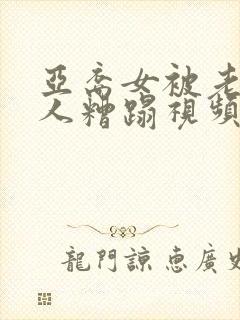 亞裔女被老
人糟蹋視頻
龍門諒惠廣